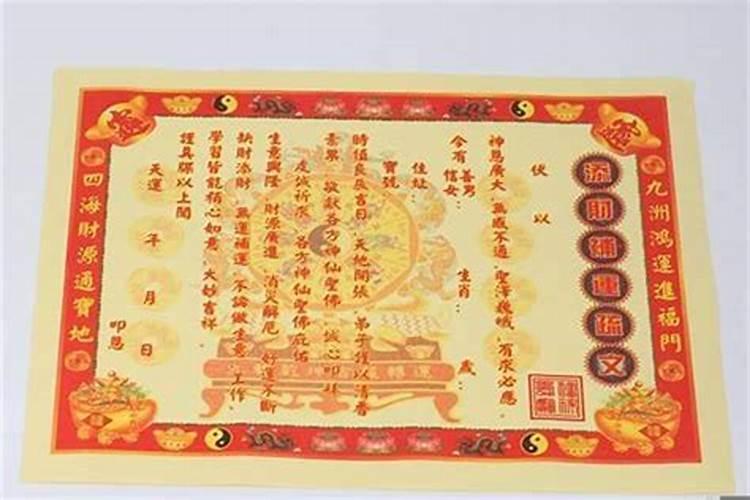 九洲鴻運進福門
添財補運疏文
伏以
神恩廣大 無感不通 聖澤巍峨 有求必應
今有 善男 信女： 生肖： 歲：
住址：
寶號
時值良辰吉日 天地開張 弟子謹以清香
素果 敬獻各方神仙聖佛 誠心叩拜
虔誠祈求 各方神仙聖佛庇佑
生意興隆 財源廣進 消災解厄 好運不斷
缺財添財 無運補運 不論做生意 工作、
學習皆能稱心如意 大妙吉祥
謹具疏以上聞
天運 年 月 日
叩恩
四海財源通寶地